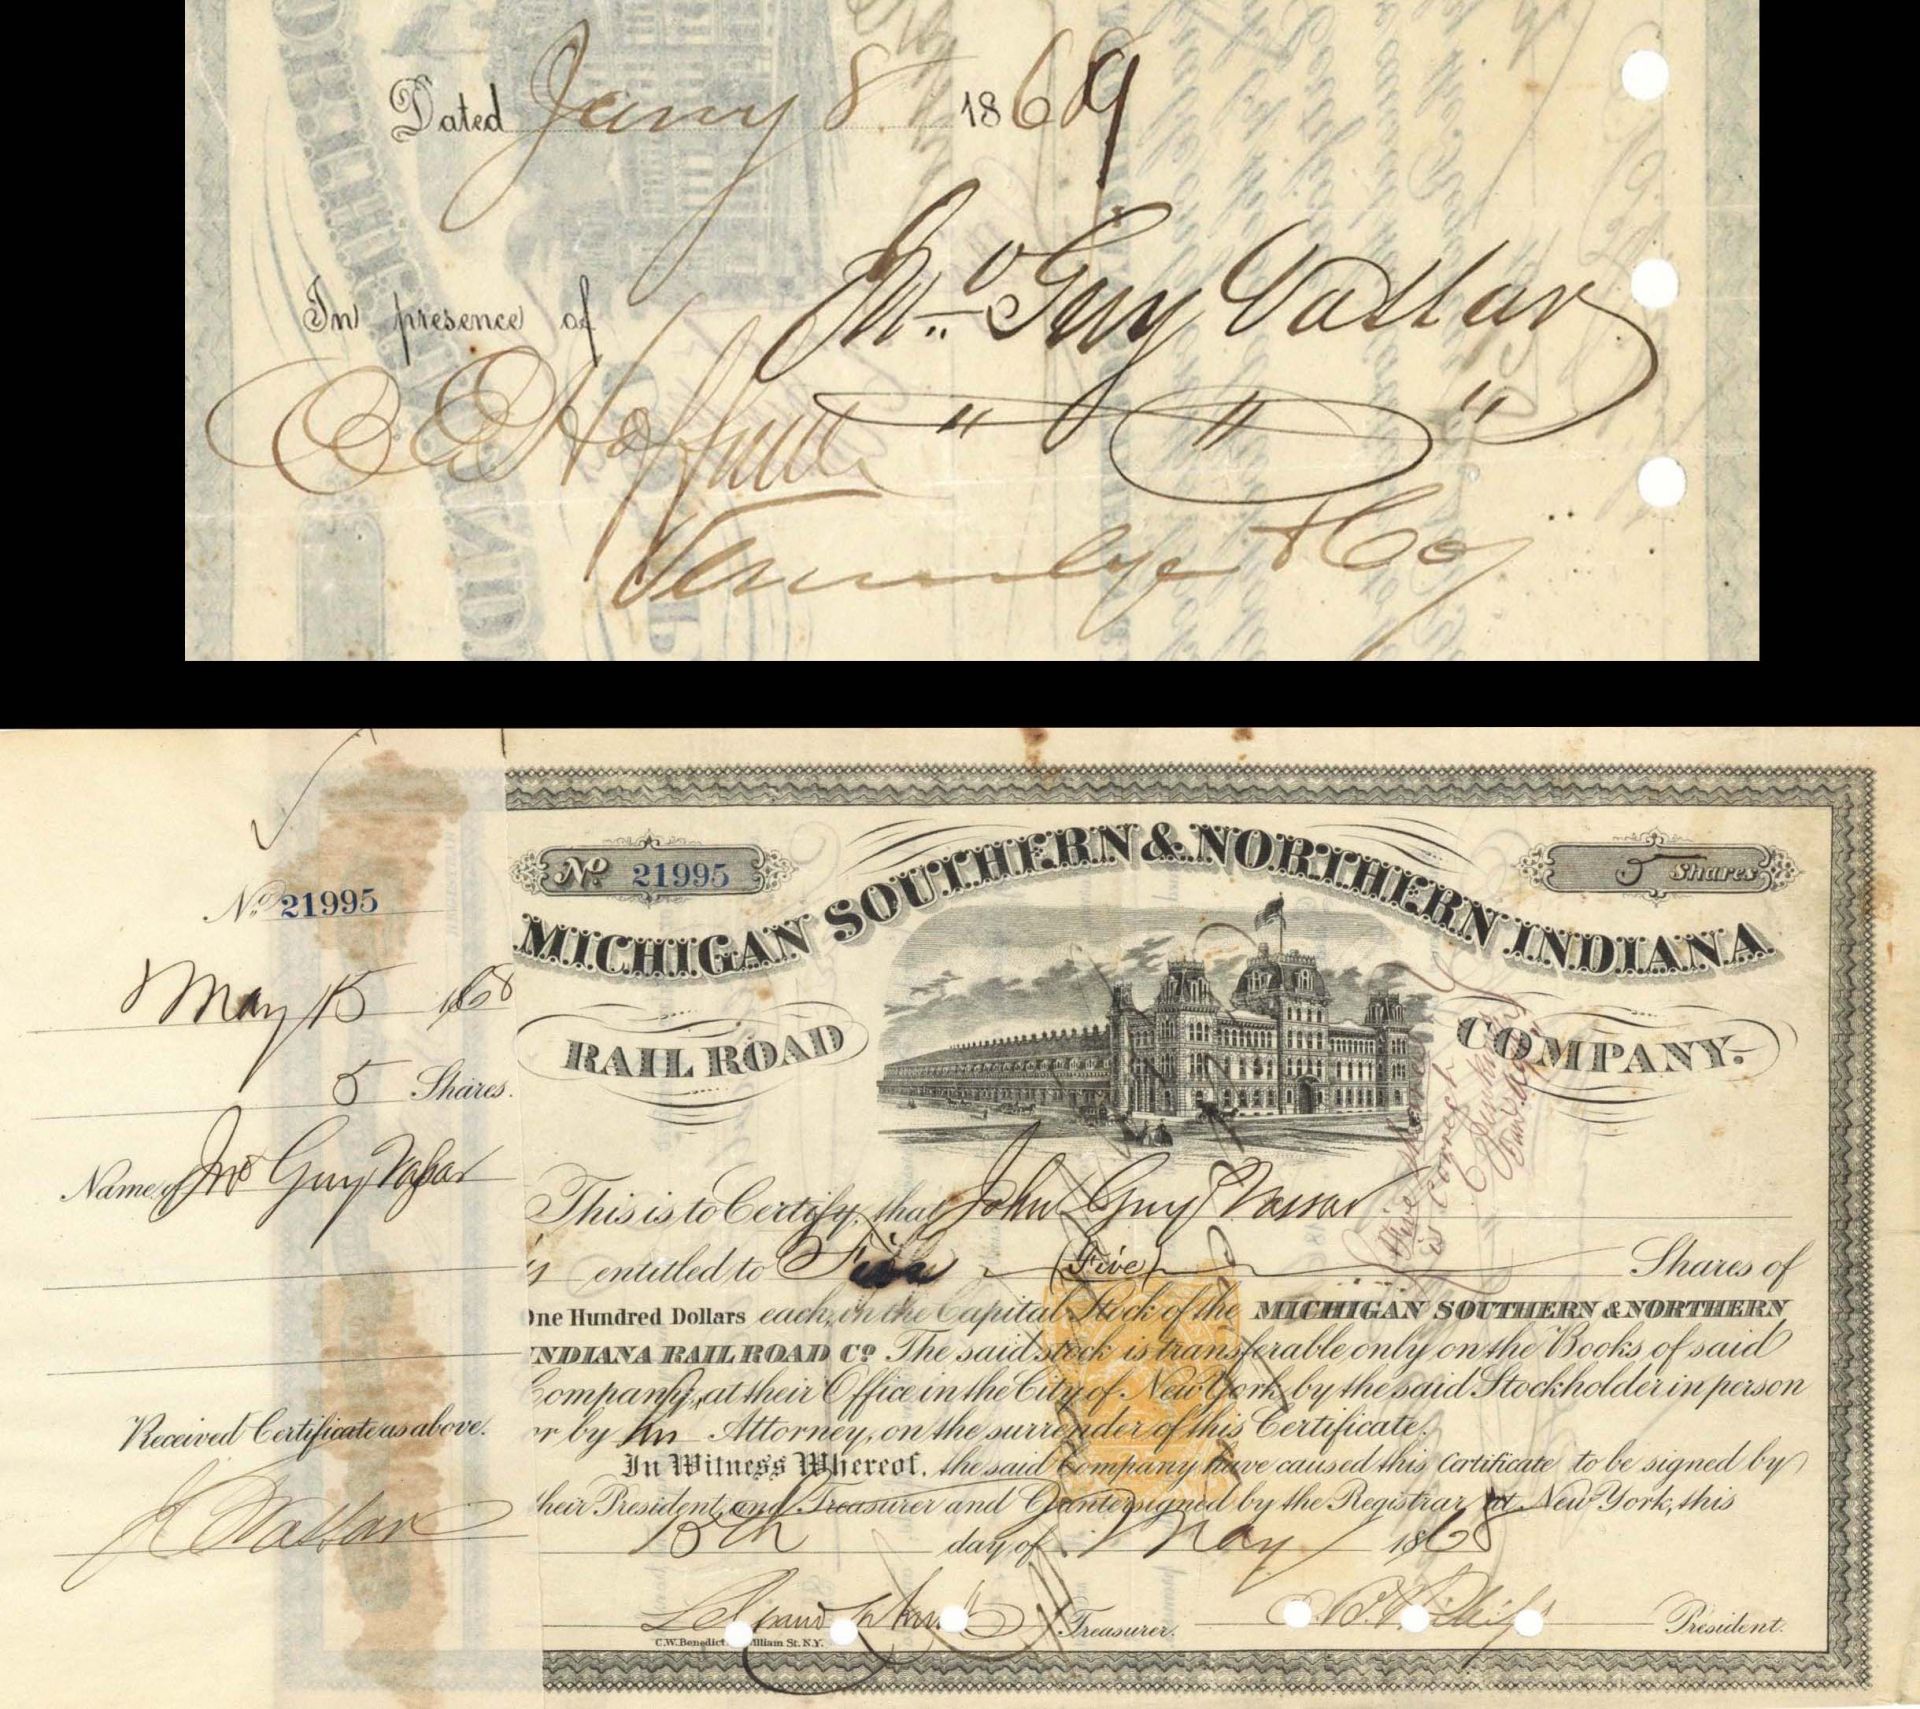 Dated Jany 8 1869
In presence of
Jno. Guy Vassar
" " "
& Co
No. 21995
May 15 1868
5 Shares.
Name of Jno Guy Vassar
Received Certificate as above.
J G Vassar
No. 21995
5 Shares
MICHIGAN SOUTHERN & NORTHERN INDIANA
RAIL ROAD COMPANY.
This is to Certify, that John Guy Vassar
is entitled to Five (Five) Shares of
One Hundred Dollars each, in the Capital Stock of the MICHIGAN SOUTHERN & NORTHERN
INDIANA RAIL ROAD Co. The said stock is transferable only on the Books of said
Company, at their Office in the City of New York, by the said Stockholder in person
or by his Attorney, on the surrender of this Certificate.
In Witness Whereof, the said Company have caused this Certificate to be signed by
their President, and Treasurer and Countersigned by the Registrar, at New York, this
15th day of May 1868
Treasurer. President.
C.W. Benedict William St. N.Y.
Five Shares
is correct
Transf Agent